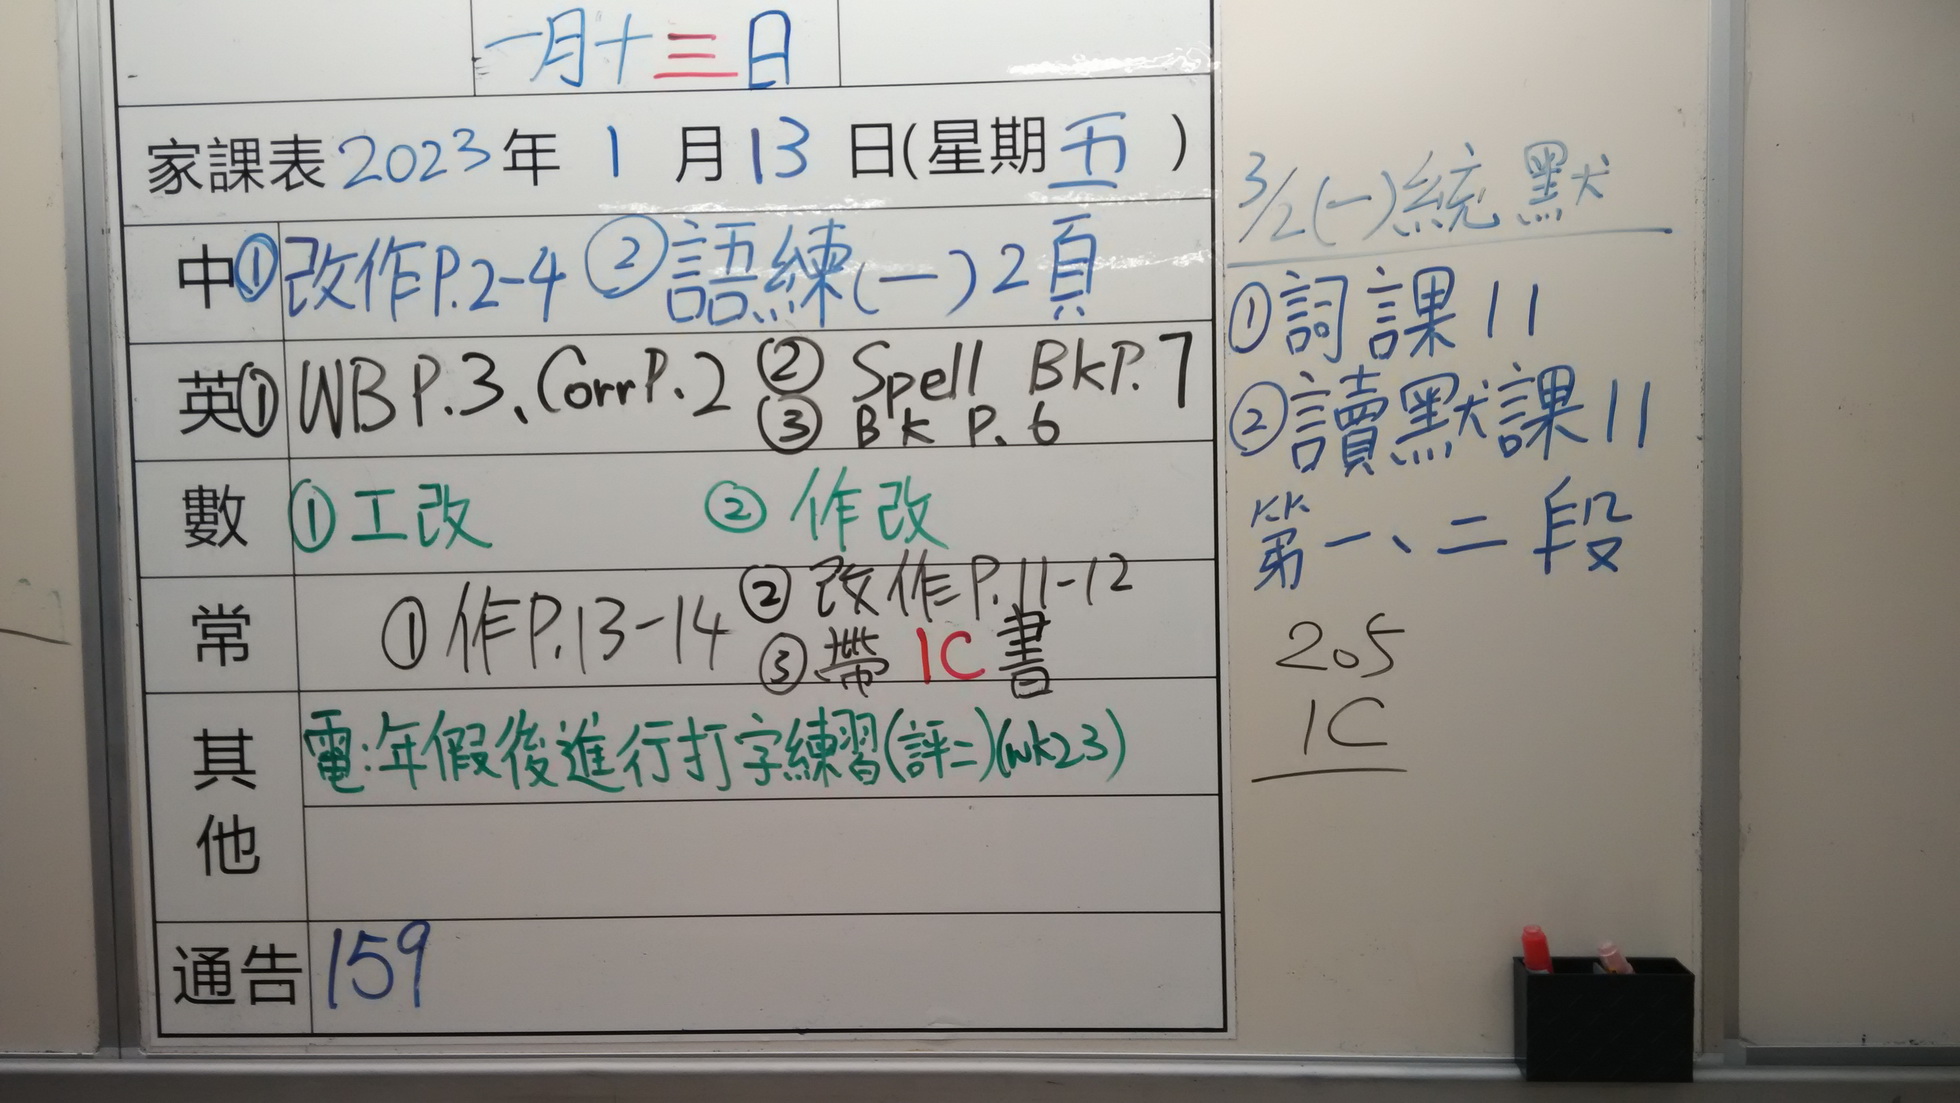 一月十三日
家課表2023年 1 月 13 日(星期 五 )
中①改作P.2-4 ②語練(一)2頁
英①WB P.3、Corr P.2 ② Spell Bk P.7
③ Bk P. 6
數 ①工改 ② 作改
常 ①作P.13-14 ②改作P.11-12
③帶 1C 書
其他 電:年假後進行打字練習(評二)(wk23)
通告 159
3/2(一)統默
①詞課11
②讀默課11
第一、二段
205
1C